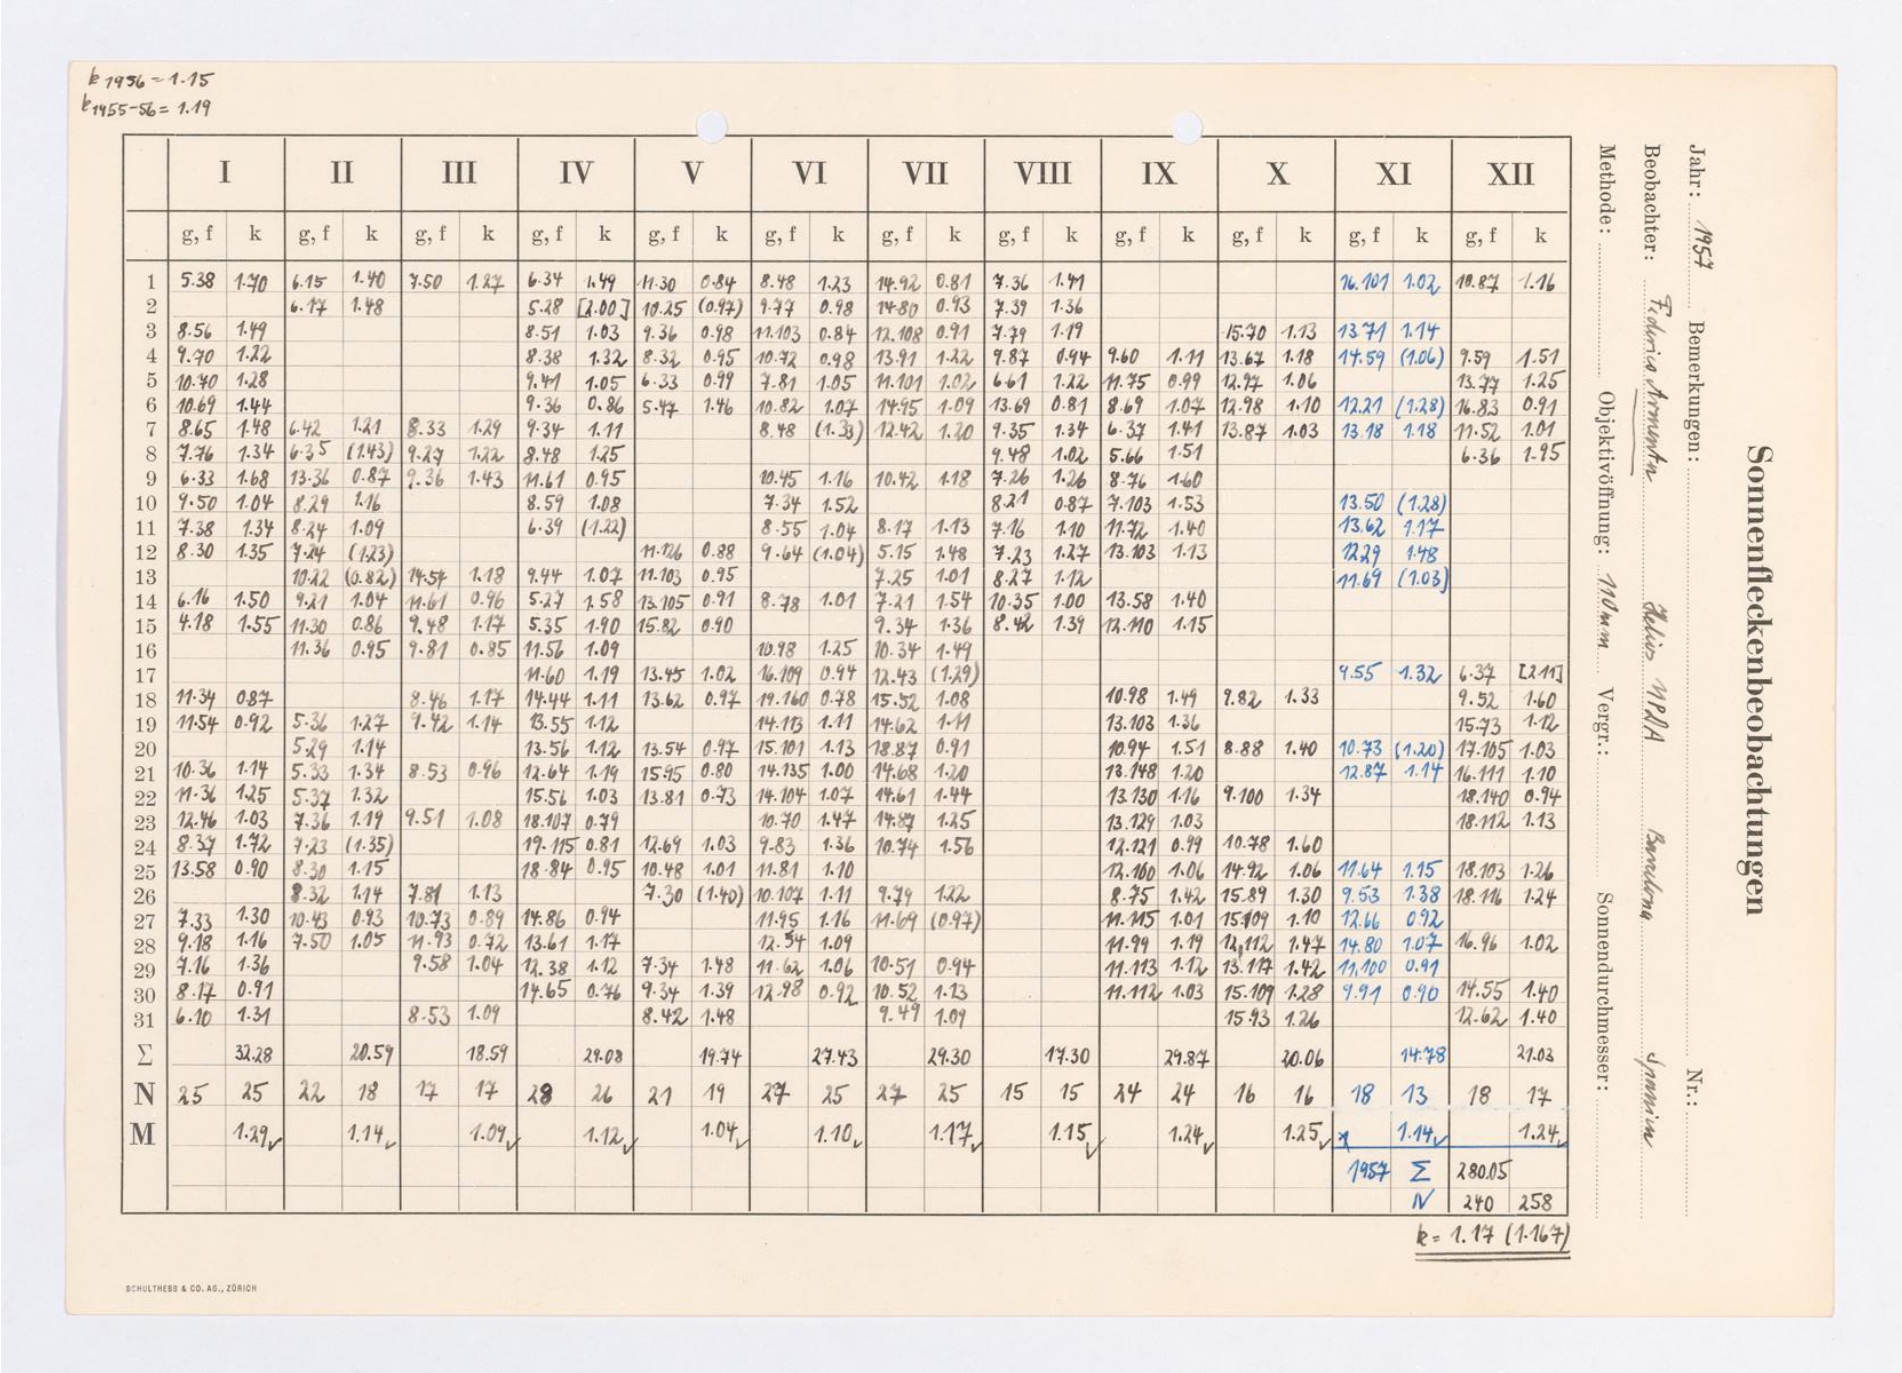 k 1956 = 1.15
k 1955-56 = 1.19
Sonnenfleckenbeobachtungen
Jahr: 1957 Bemerkungen: Nr.:
Beobachter: Federico Armenter Helios NPDA Barcelona Spanien
Methode: Objektivöffnung: 110 mm Vergr.: Sonnendurchmesser:
I II III IV V VI VII VIII IX X XI XII
g, f k g, f k g, f k g, f k g, f k g, f k g, f k g, f k g, f k g, f k g, f k g, f k
1 5.38 1.70 6.15 1.40 7.50 1.27 6.34 1.49 11.30 0.84 8.48 1.23 14.92 0.81 7.36 1.41 16.101 1.02 10.87 1.16
2 6.17 1.48 5.28 [2.00] 10.25 (0.97) 9.77 0.98 14.80 0.93 7.39 1.36
3 8.56 1.49 8.51 1.03 9.36 0.98 11.103 0.84 12.108 0.91 7.79 1.19 15.70 1.13 13.71 1.14
4 9.70 1.22 8.38 1.32 8.32 0.95 10.72 0.98 13.91 1.22 9.87 0.94 9.60 1.11 13.67 1.18 14.59 (1.06) 9.59 1.51
5 10.70 1.28 9.41 1.05 6.33 0.99 7.81 1.05 11.101 1.02 6.61 1.22 11.75 0.99 12.97 1.06 13.77 1.25
6 10.69 1.44 9.36 0.86 5.47 1.46 10.82 1.07 14.95 1.09 13.69 0.81 8.69 1.07 12.98 1.10 12.21 (1.28) 16.83 0.91
7 8.65 1.48 6.42 1.21 8.33 1.29 9.34 1.11 8.48 (1.33) 12.42 1.20 9.35 1.34 6.37 1.41 13.87 1.03 13.18 1.18 11.52 1.01
8 7.76 1.34 6.35 (1.43) 9.27 1.22 8.48 1.25 9.48 1.02 5.66 1.51 6.36 1.95
9 6.33 1.68 13.36 0.87 9.36 1.43 11.61 0.95 10.45 1.16 10.42 1.18 7.26 1.26 8.76 1.60
10 9.50 1.04 8.29 1.16 8.59 1.08 7.34 1.52 8.21 0.87 7.103 1.53 13.50 (1.28)
11 7.38 1.34 8.24 1.09 6.39 (1.22) 8.55 1.04 8.17 1.13 7.16 1.10 11.72 1.40 13.62 1.17
12 8.30 1.35 7.24 (1.23) 11.126 0.88 9.64 (1.04) 5.15 1.48 7.23 1.27 13.103 1.13 12.29 1.48
13 10.22 (0.82) 14.54 1.18 9.44 1.07 11.103 0.95 7.25 1.01 8.27 1.12 11.69 (1.03)
14 6.16 1.50 9.21 1.04 11.61 0.96 5.27 1.58 13.105 0.91 8.78 1.01 7.21 1.54 10.35 1.00 13.58 1.40
15 4.18 1.55 11.30 0.86 9.48 1.17 5.35 1.90 15.82 0.90 9.34 1.36 8.42 1.39 12.110 1.15
16 11.36 0.95 9.81 0.85 11.56 1.09 10.98 1.25 10.34 1.49
17 11.60 1.19 13.45 1.02 16.109 0.94 12.43 (1.29) 9.55 1.32 6.37 [2.11]
18 11.34 0.87 8.46 1.17 14.44 1.11 13.62 0.97 19.160 0.78 15.52 1.08 10.98 1.49 9.82 1.33 9.52 1.60
19 11.54 0.92 5.36 1.27 9.42 1.14 13.55 1.12 14.113 1.11 14.62 1.11 13.103 1.36 15.73 1.12
20 5.29 1.14 13.56 1.12 13.54 0.97 15.101 1.13 18.87 0.91 10.94 1.51 8.88 1.40 10.73 (1.20) 17.105 1.03
21 10.36 1.14 5.33 1.34 8.53 0.96 12.64 1.19 15.95 0.80 14.135 1.00 14.68 1.20 13.148 1.20 12.87 1.14 16.111 1.10
22 11.36 1.25 5.37 1.32 15.56 1.03 13.81 0.73 14.104 1.07 14.61 1.44 13.130 1.16 9.100 1.34 18.140 0.94
23 12.46 1.03 7.36 1.19 9.51 1.08 18.107 0.79 10.70 1.47 14.87 1.25 13.129 1.03 18.112 1.13
24 8.37 1.72 7.23 (1.35) 19.115 0.81 12.69 1.03 9.83 1.36 10.74 1.56 12.121 0.99 10.78 1.60
25 13.58 0.90 8.30 1.15 18.84 0.95 10.48 1.01 11.81 1.10 12.100 1.06 14.92 1.06 11.64 1.15 18.103 1.26
26 8.32 1.14 7.81 1.13 7.30 (1.40) 10.107 1.11 9.79 1.22 8.75 1.42 15.89 1.30 9.53 1.38 18.116 1.24
27 7.33 1.30 10.43 0.93 10.73 0.89 14.86 0.94 11.95 1.16 11.69 (0.97) 11.115 1.01 15.109 1.10 12.66 0.92
28 9.18 1.16 7.50 1.05 11.93 0.72 13.61 1.17 12.54 1.09 11.99 1.19 12.112 1.47 14.80 1.07 16.96 1.02
29 7.16 1.36 9.58 1.04 12.38 1.12 7.34 1.48 11.62 1.06 10.51 0.94 11.113 1.12 13.117 1.42 11.100 0.91
30 8.17 0.91 14.65 0.76 9.34 1.39 12.98 0.92 10.52 1.13 11.112 1.03 15.109 1.28 9.91 0.90 14.55 1.40
31 6.10 1.31 8.53 1.09 8.42 1.48 9.49 1.09 15.93 1.26 12.62 1.40
Σ 32.28 20.59 18.59 29.08 19.74 27.43 29.30 17.30 29.87 20.06 14.78 21.03
N 25 25 22 18 17 17 28 26 21 19 27 25 27 25 15 15 24 24 16 16 18 13 18 17
M 1.29 1.14 1.09 1.12 1.04 1.10 1.17 1.15 1.24 1.25 1.14 1.24
1957 Σ 280.05
N 240 258
k = 1.17 (1.167)
SCHULTHESS & CO. AG., ZÜRICH